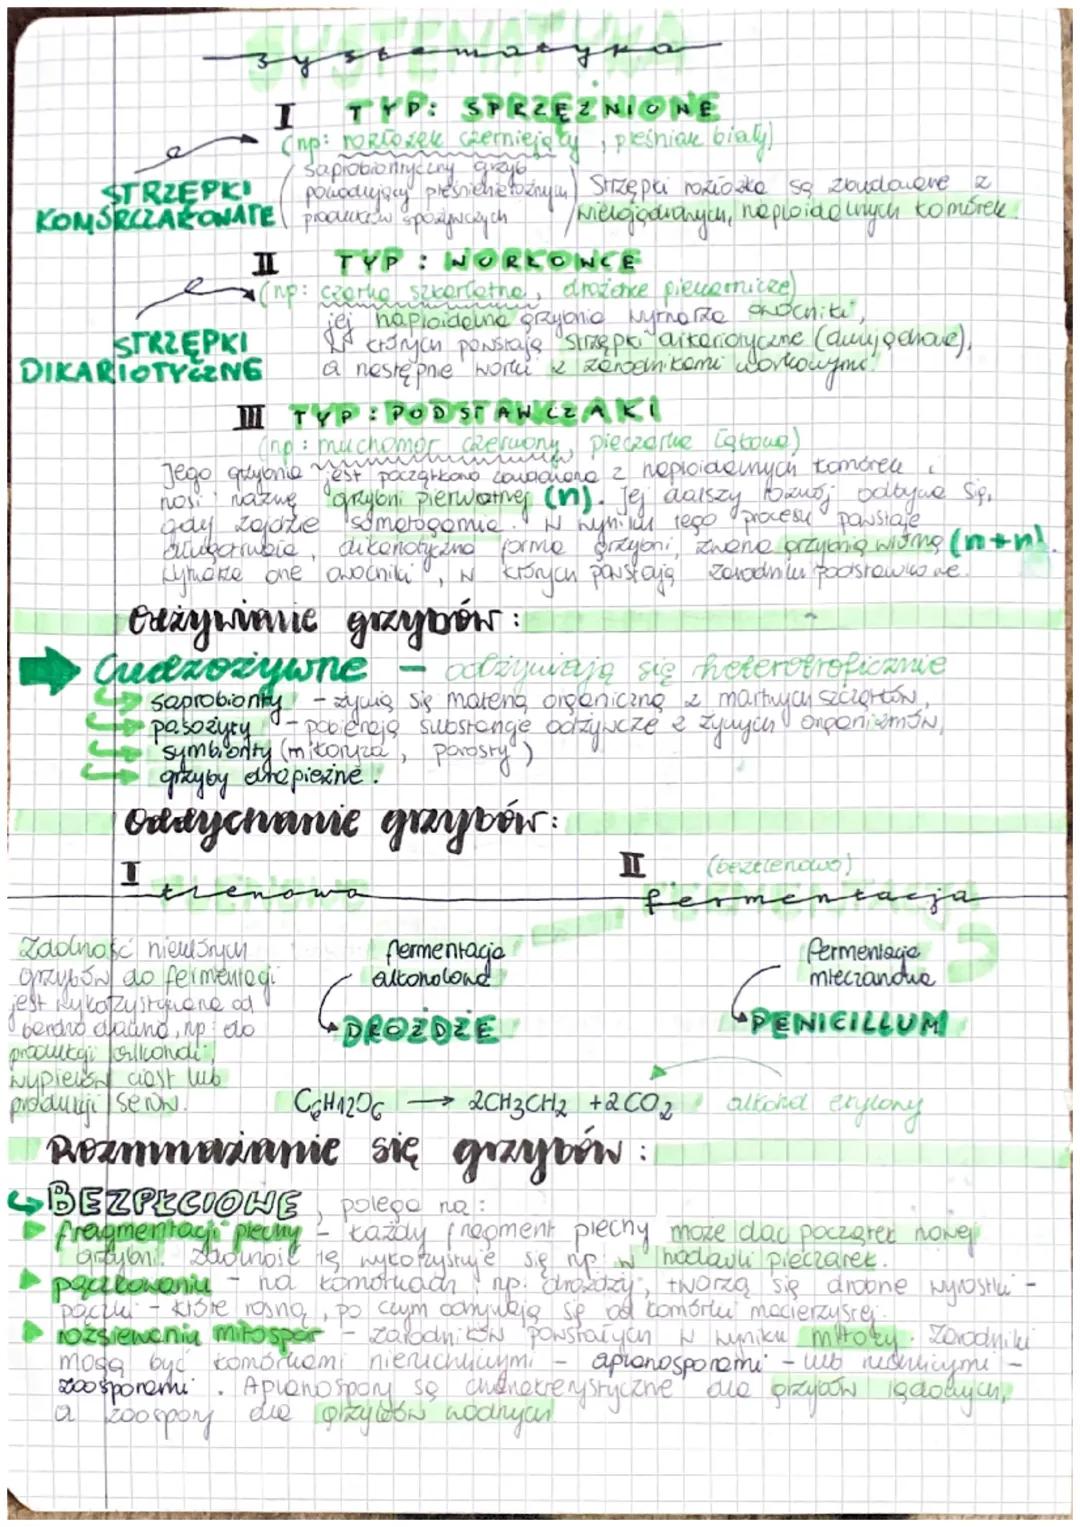 systematyka
I TYP: SPRZĘŻNIONE
(np: rozłożek czerniejący, pleśniak biały)
STRZĘPKI
KOMÓRCZAKOWATE
saprobiontyczny grzyb
powodujący pleśnienie różnych
produktów spożywczych
Strzępki rozłożka są zbudowane z
wielojądrowych, haploidalnych komórek.
II TYP: WORKOWCE
(np: czarka szkarłatna, drożdże piekarnicze)
STRZĘPKI
DIKARIOTYCZNE
jej haploidalna grzybnia wytwarza owocniki,
w których powstają strzępki dikariotyczne (dwujądrowe),
a następnie worki z zarodnikami workowymi.
III TYP: PODSTAWCZAKI
(np: muchomor czerwony, pieczarka łąkowa)
Jego grzybnia jest początkowo zbudowana z haploidalnych komórek i
nosi nazwę grzybni pierwotnej (n). Jej dalszy rozwój odbywa się,
gdy zajdzie somatogamia. W wyniku tego procesu powstaje
długotrwała, dikariotyczna forma grzybni, zwana grzybnią wtórną (n+n).
Wytwarza one owocniki, w których powstają zarodniki podstawkowe.
Odżywianie grzybów:
Cudzożywne - odżywiają się heterotroficznie
saprobionty - żywią się materią organiczną z martwych szczątków,
pasożyty - pobierają substancje odżywcze z żywych organizmów,
symbionty (mikoryza, porosty)
grzyby drapieżne.
Oddychanie grzybów:
I tlenowe
II (beztlenowo) fermentacja
Zdolność niektórych
grzybów do fermentacji
jest wykorzystywana od
bardzo dawna, np: do
produkcji alkoholi,
wypieków ciast lub
produkcji serów.
fermentacja
alkoholowa
DROŻDŻE
fermentacja
mleczanowa
PENICILLUM
C6H12O6 → 2CH3CH2 + 2CO2 alkohol etylowy
Rozmnażanie się grzybów:
BEZPŁCIOWE, polega na:
fragmentacji plechy - każdy fragment plechy może dać początek nowej
grzybni. Zdolność tę wykorzystuje się np. w hodowli pieczarek.
pączkowaniu - na komórkach, np. drożdży, tworzą się drobne wyrostki -
pączki - które rosną, po czym odrywają się od komórki macierzystej.
rozsiewaniu mitospor - zarodników powstałych w wyniku mitozy. Zarodniki
mogą być komórkami nieruchliwymi - aplanosporami - lub ruchliwymi -
zoosporami. Aplanospory są charakterystyczne dla grzybów lądowych,
a zoospory dla grzybów wodnych